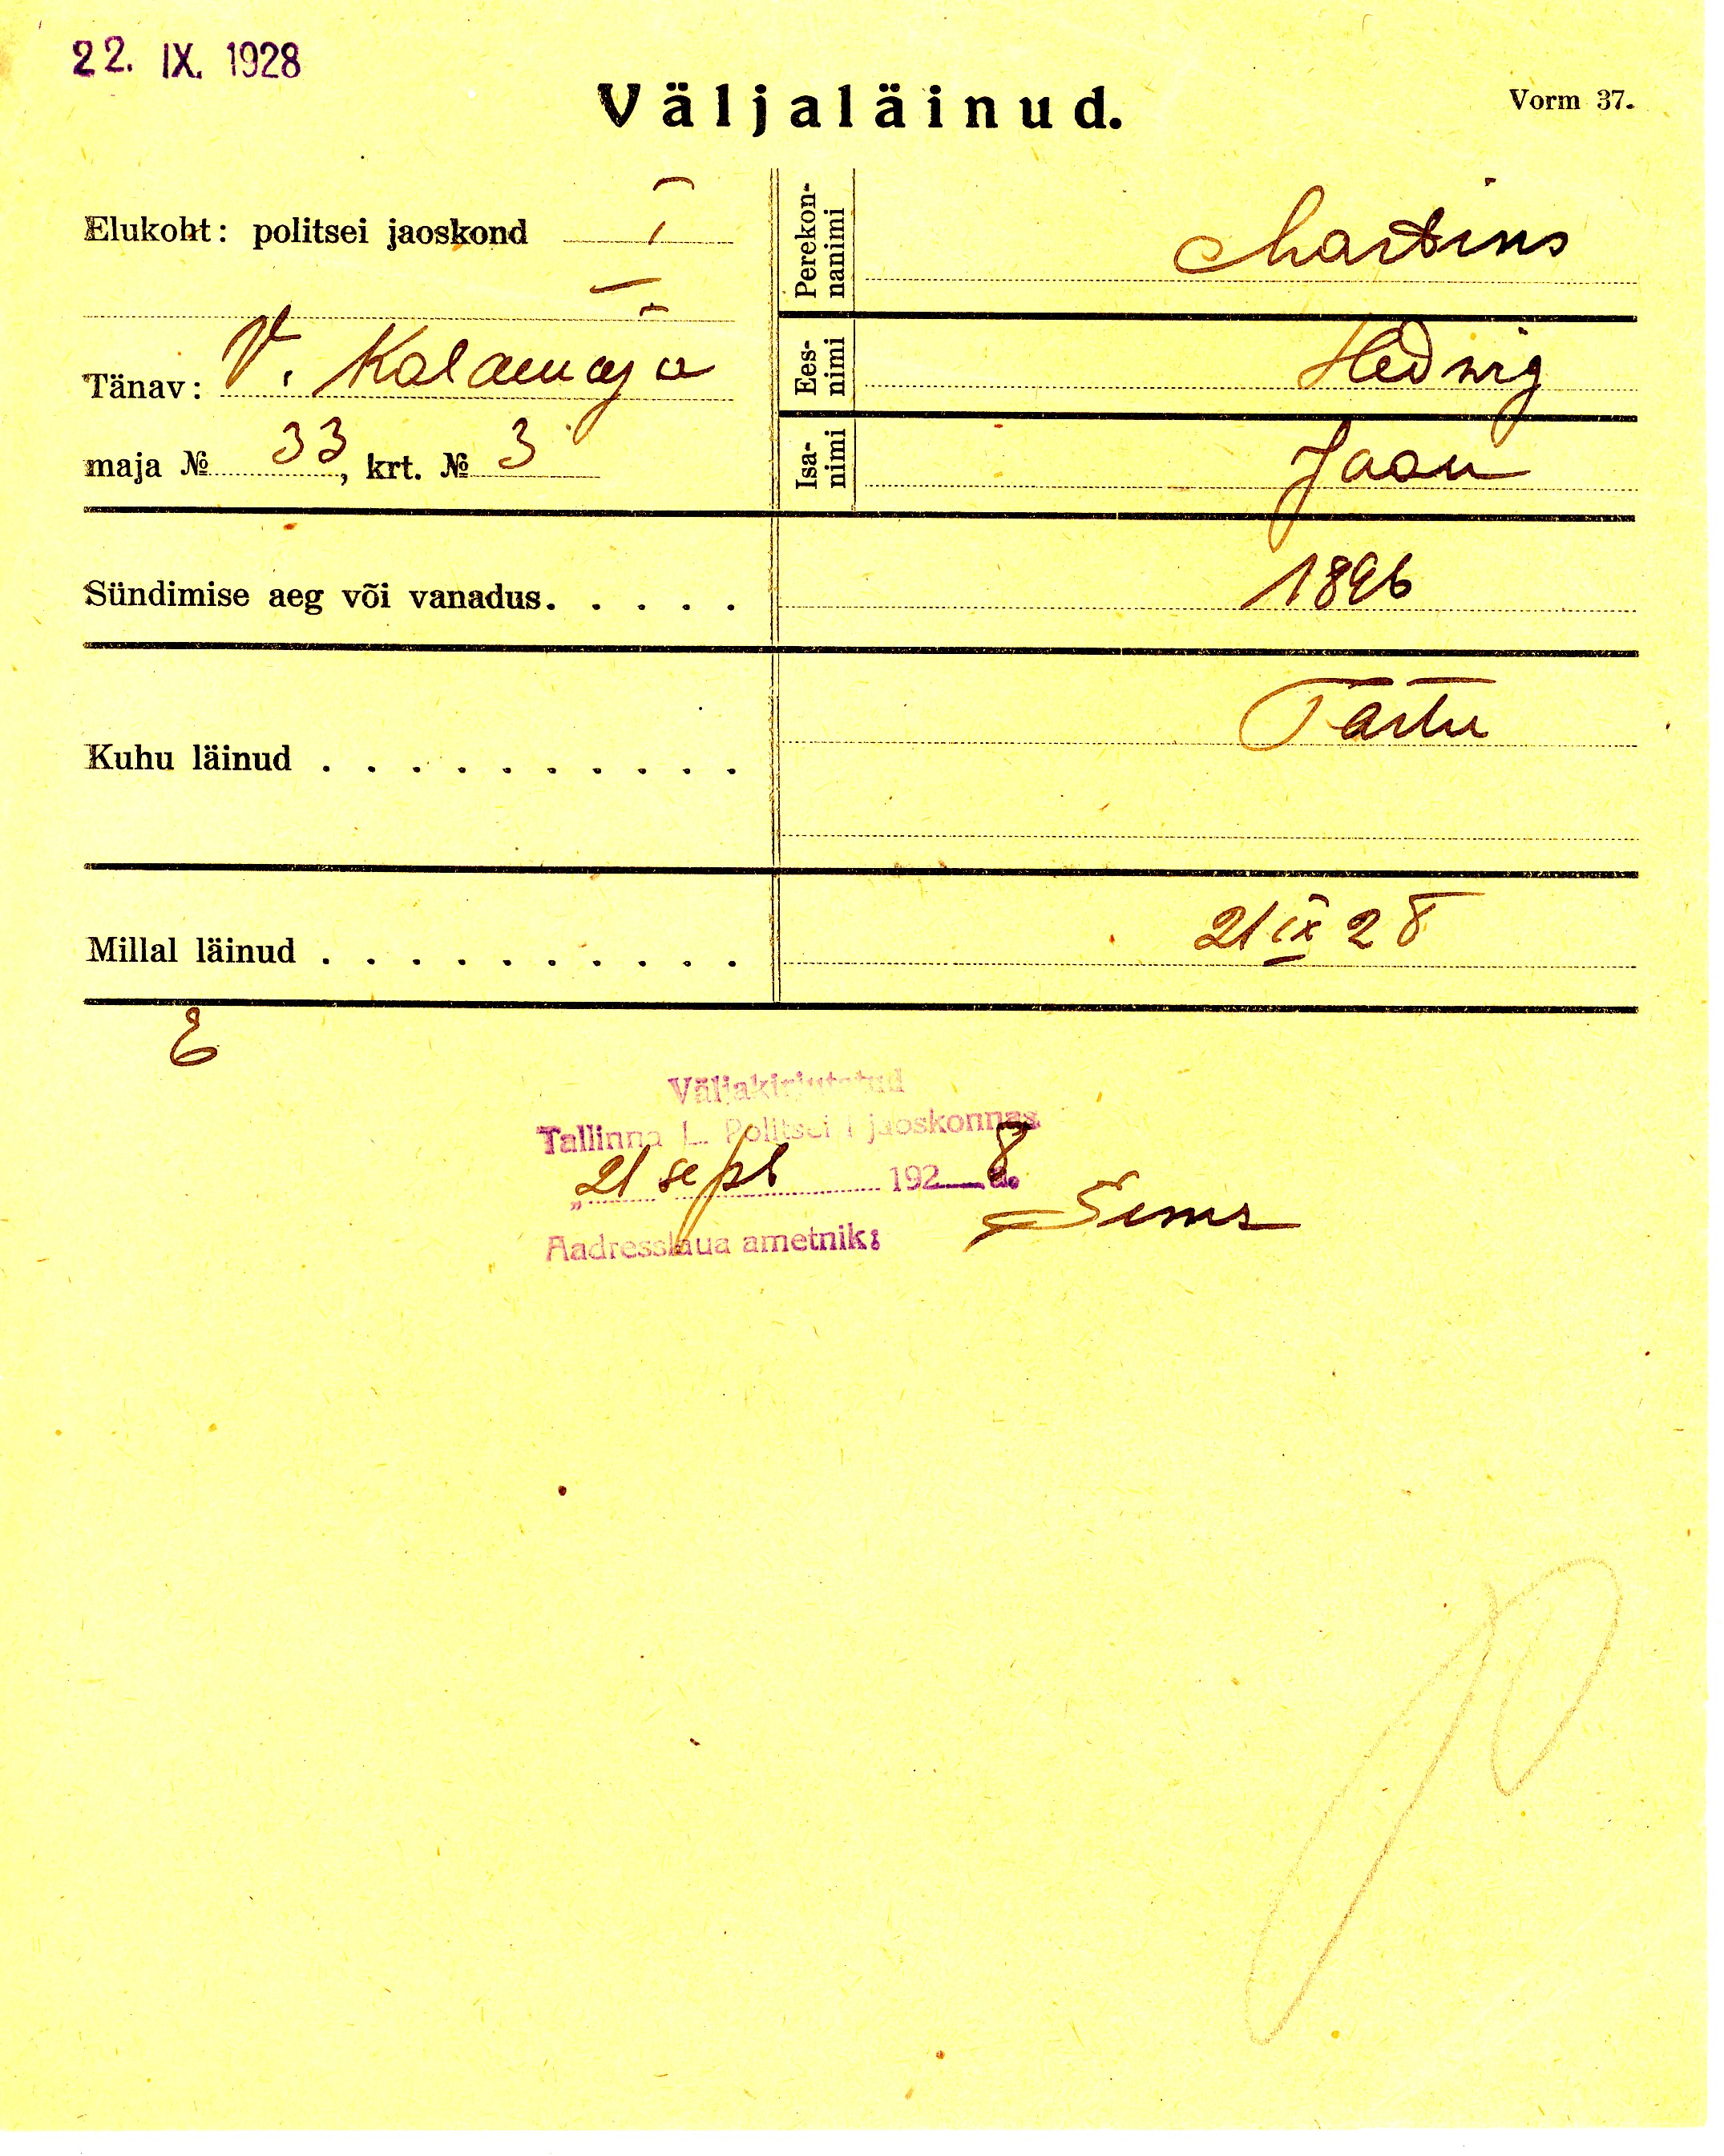 22. IX. 1928
Väljaläinud.
Vorm 37.
Elukoht: politsei jaoskond I
Tänav: V. Kalamaja
maja № 33, krt. № 3
Perekon-
nanimi
Martins
Ees-
nimi
Hedwig
Isa-
nimi
Jaan
Sündimise aeg või vanadus. . . . . 1896
Kuhu läinud . . . . . . . . . . Tartu
Millal läinud . . . . . . . . . . 21 IX 28
E
Väljakirjutatud
Tallinna L. Politsei I jaoskonnas
„21 sept 1928 a.
Aadresslaua ametnik: